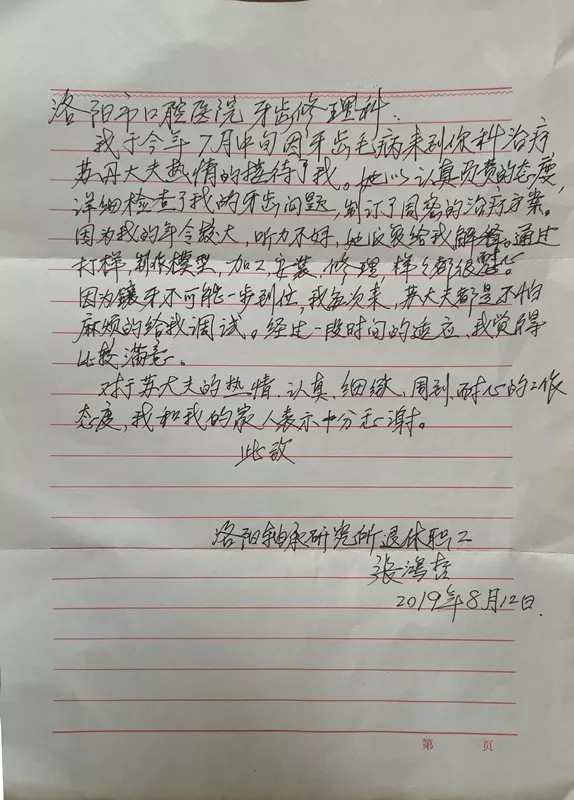 洛阳市口腔医院牙齿修理科.
我于今年7月中旬因牙齿毛病来到你科治疗
苏丹大夫热情的接待了我。她以认真负责的态度,
详细检查了我的牙齿问题,制订了周密的治疗方案。
因为我的年令较大,听力不好,她反复给我解释。通过
打样,制作模型,加工、安装、修理,样样都很尽心。
因为镶牙不可能一步到位,我每次来,苏大夫都是不怕
麻烦的给我调试。经过一段时间的适应,我觉得
比较满意。
对于苏大夫的热情、认真、细致、周到、耐心的工作
态度,我和我的家人表示十分感谢。
此致
洛阳轴承研究所退休职工
张鸿哲
2019年8月12日.
第 页